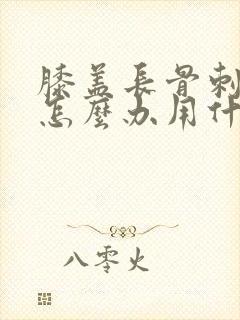 膝盖長骨刺
怎麼办用什
八零火